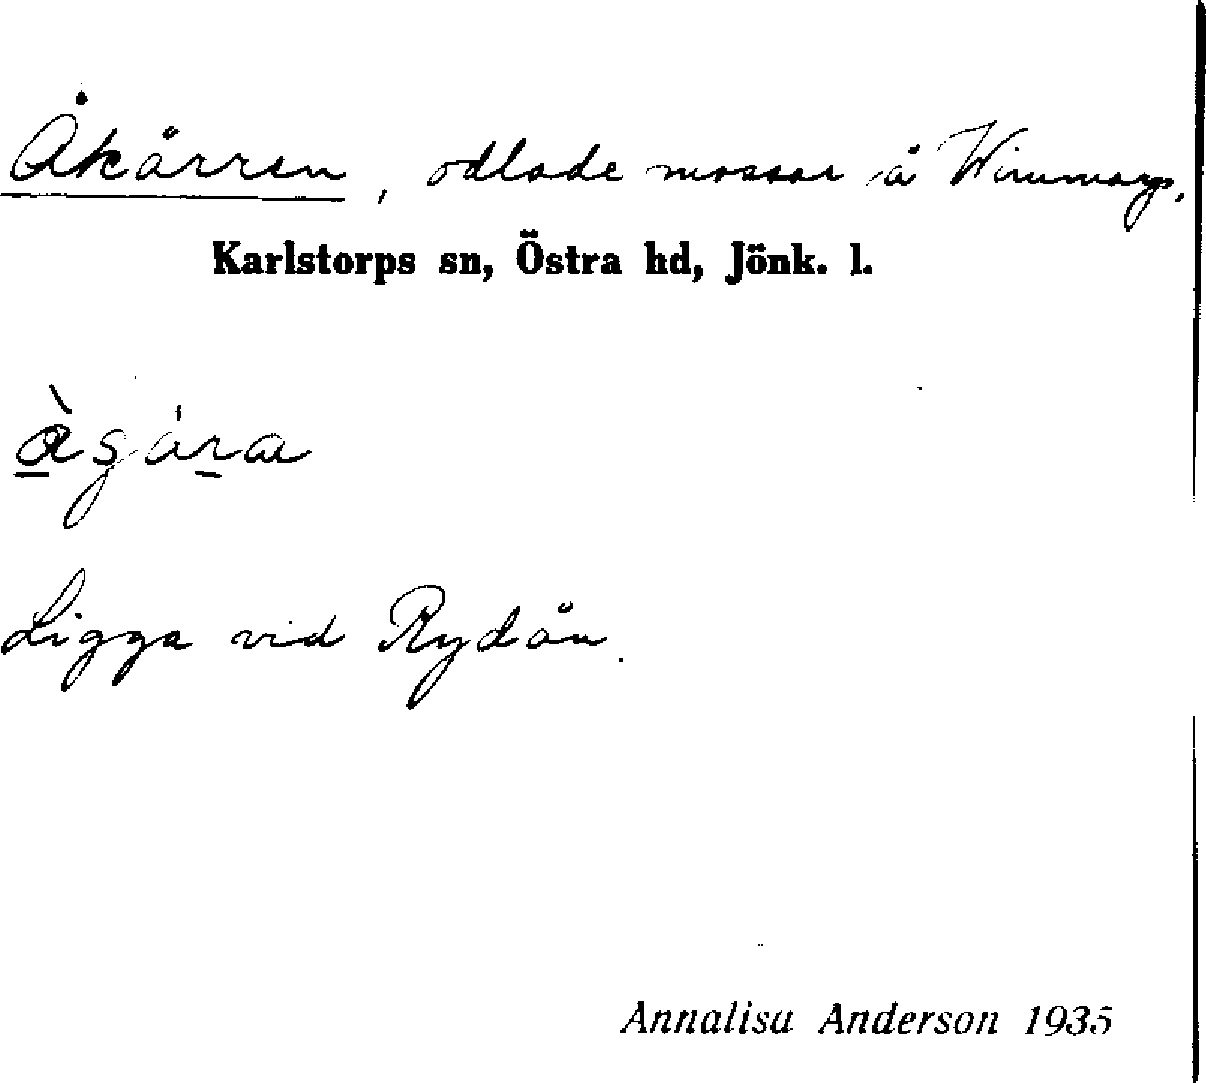 Åkärren, odlade mossar å Wimmarp,
Karlstorps sn, Östra hd, Jönk. l.
Ligga vid Rydån.
Annalisa Anderson 1935